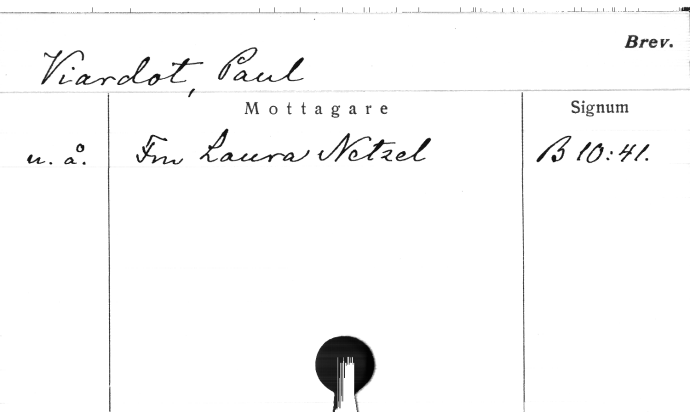 Brev.
Viardot, Paul
Mottagare Signum
u. å. Fru Laura Netzel B 10:41.